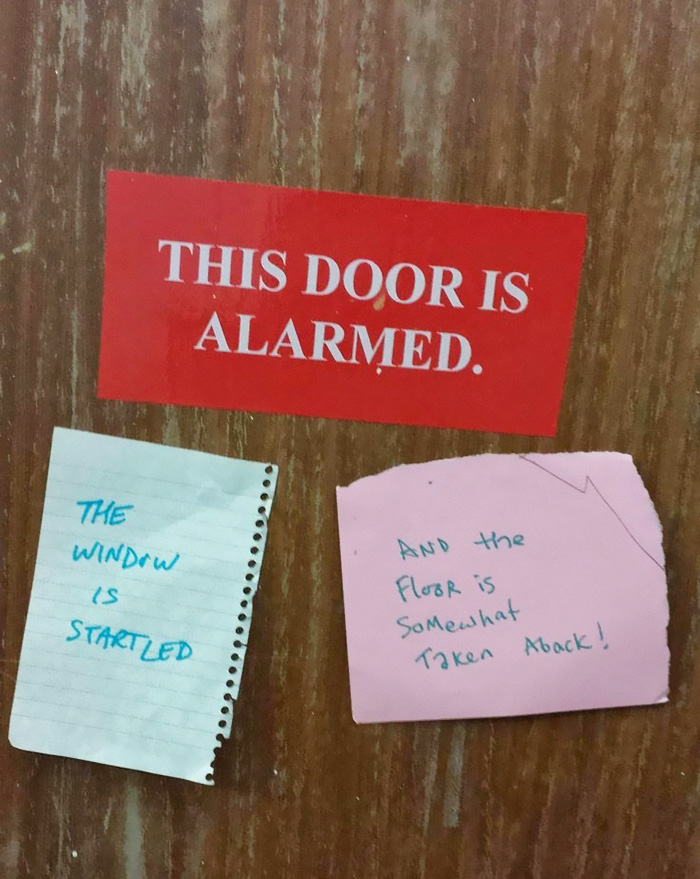 THIS DOOR IS
ALARMED.
THE
WINDOW
IS
STARTLED
AND the
FlooR is
SoMewhat
Taken Aback!